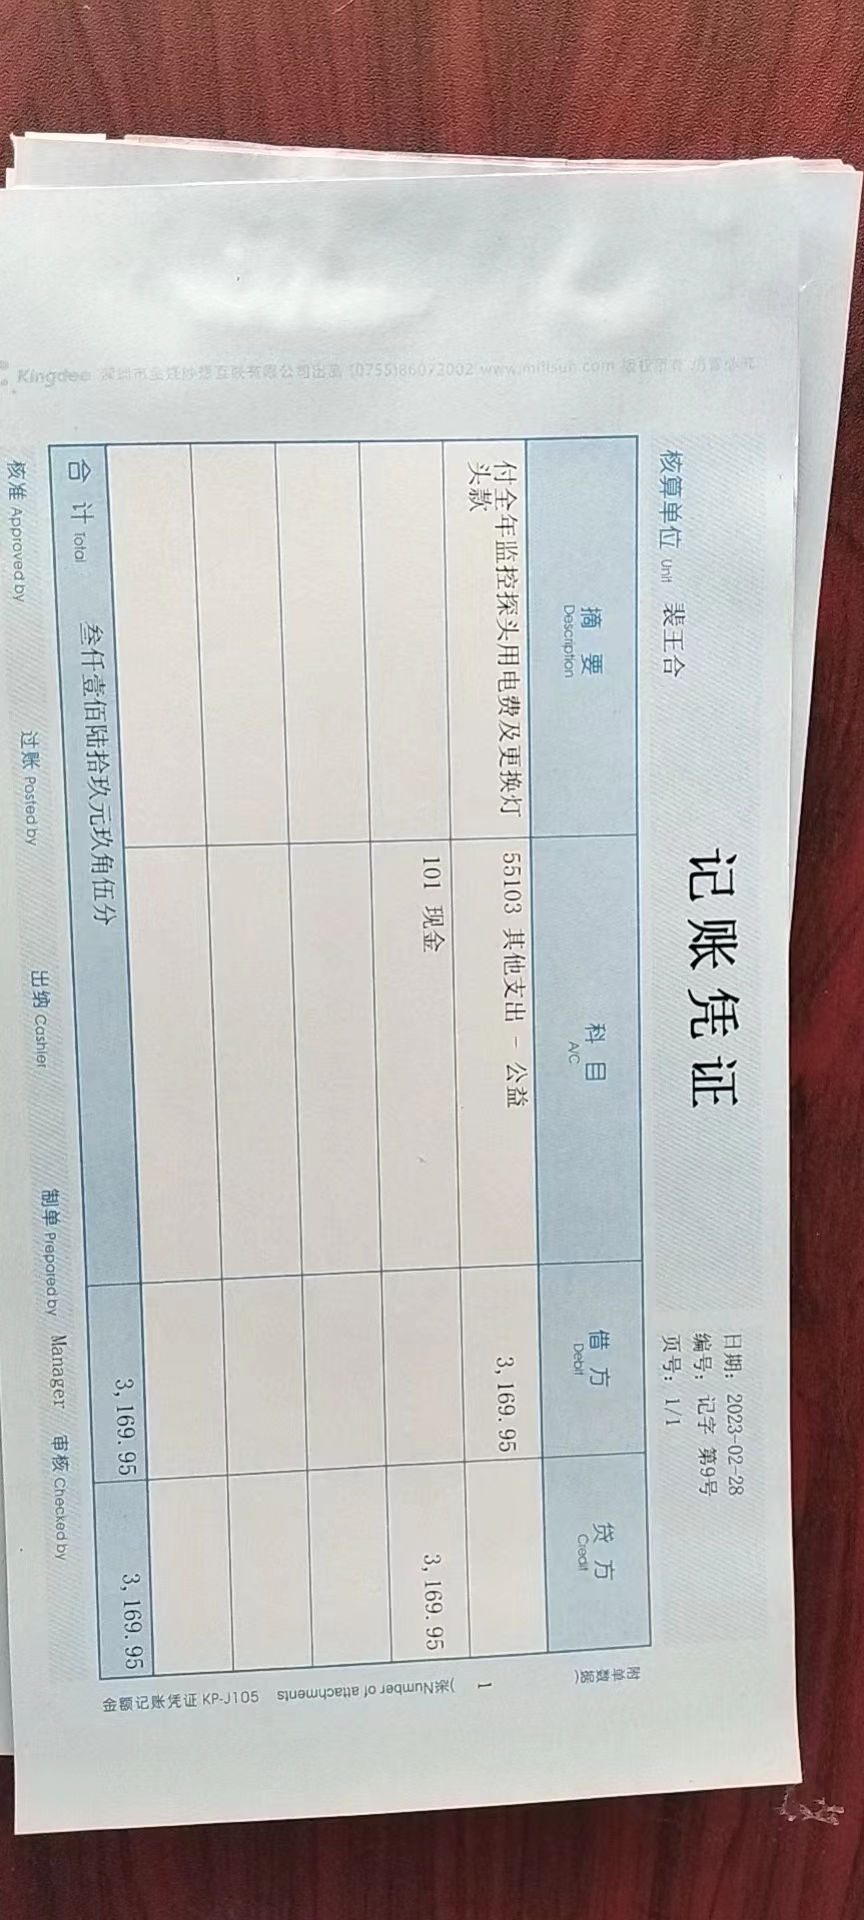 记账凭证
日期: 2023-02-28
编号: 记字 第9号
页号: 1/1
核算单位 Unit 裴王合
摘 要 Description 科 目 A/C 借 方 Debit 贷 方 Credit
付全年监控探头用电费及更换灯头款 55103 其他支出 - 公益 3,169.95
101 现金 3,169.95
合 计 Total 叁仟壹佰陆拾玖元玖角伍分 3,169.95 3,169.95
核准 Approved by 过账 Posted by 出纳 Cashier 制单 Prepared by Manager 审核 Checked by
附单数据( 1 )张 Number of attachments
金额记账凭证 KP-J105
Kingdee 深圳市金蝶妙想互联有限公司出品 (0755)86072002 www.mllsun.com 版权所有